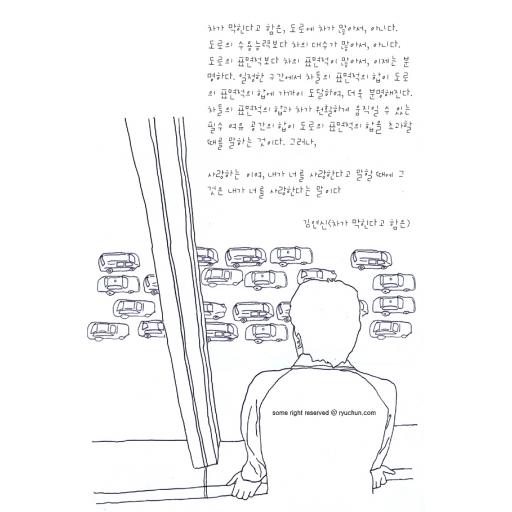 차가 막힌다고 함은, 도로에 차가 많아서, 아니다.
도로의 수용능력보다 차의 대수가 많아서, 아니다.
도로의 표면적보다 차의 표면적이 많아서, 이제는 분
명하다. 일정한 구간에서 차들의 표면적의 합이 도로
의 표면적의 합에 가까이 도달하여, 더욱 분명해진다.
차들의 표면적의 합과 차가 원활하게 움직일 수 있는
필수 여유 공간의 합이 도로의 표면적의 합을 초과할
때를 말하는 것이다. 그러나,
사랑하는 이여, 내가 너를 사랑한다고 말할 때에 그
것은 내가 너를 사랑한다는 말이다
김연신(차가 막힌다고 함은)
some right reserved @ ryuchun.com